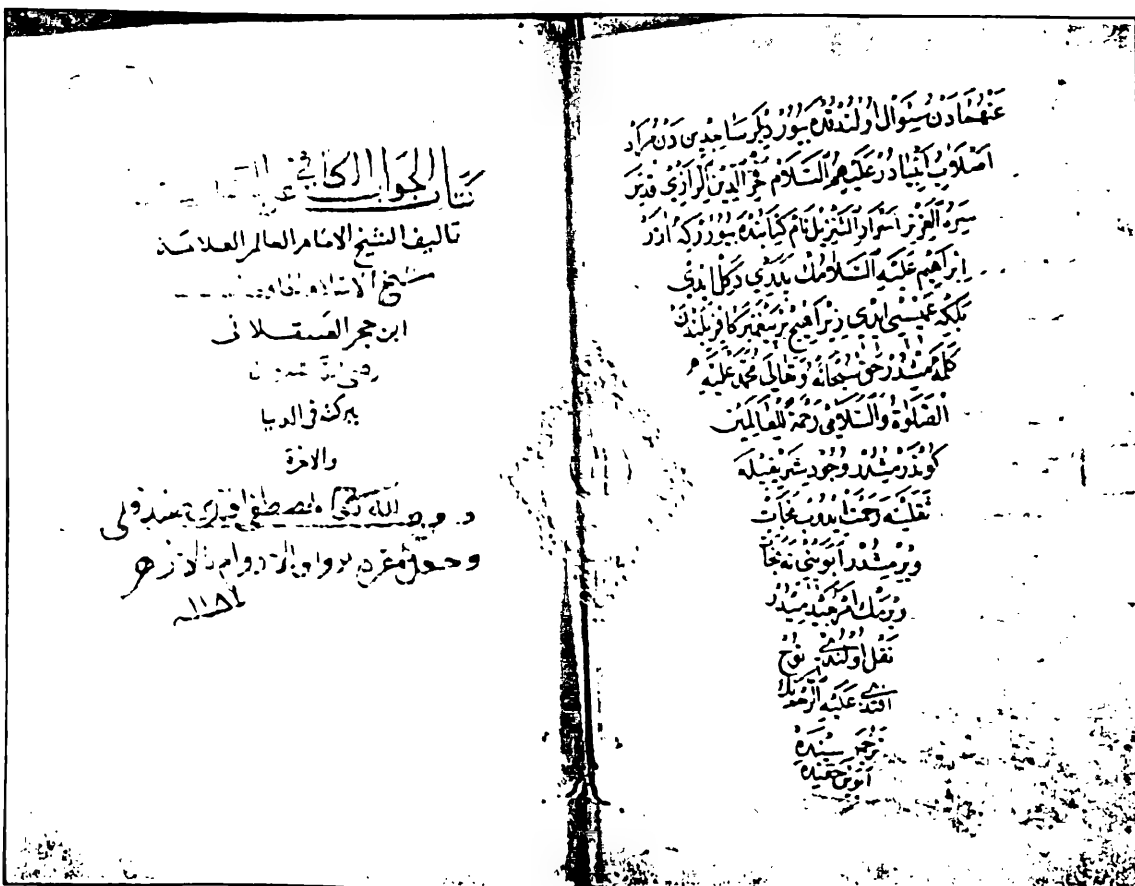 عَنْهُمَادَنْ سُئِوَالْ اُولُنْدُقْدَه بُيُورْدِيلَرْ سَاجِدِينْ دَنْ مُرَادْ
اَصْلَابِ اَنْبِيَادُرْ عَلَيْهِمُ السَّلَامْ فَخْرُ الدِّينِ الرَّازِي قُدِّسَ
سِرُّهُ الْعَزِيزْ اَسْرَارُ التَّنْزِيلْ نَامْ كِتَابِنْدَه بُيُورُرْكِه اٰزَرْ
اِبْرَاهِيمْ عَلَيْهِ السَّلَامُكْ پَدَرِي دَكِلْ ايدِي
بَلْكِه عَمِّيسِي ايدِي زِيرَا هِيچْ بِرْ پَيْغَمْبَرْ كَافِرْ بَلِنْدَنْ
كَلْمَه مِشْدُرْ حَقْ سُبْحَانَهُ وَتَعَالٰى مُحَمَّدْ عَلَيْهِ
الصَّلٰوةُ وَالسَّلَامِي رَحْمَةً لِلْعَالَمِينْ
كُونْدَرْمِشْدُرْ وُجُودِ شَرِيفِيلَه
ثَقَلَيْنَه رَحْمَتْ ايدُوبْ نَجَاتْ
وِيرْمِشْدُرْ اَبَوَيْنِي نَه نَجَاتْ
وِيرْمَكْ اَمْرِ بَعِيدْ مِيدُرْ
نَقْلْ اُولُنْدِي نُوحْ
اَفَنْدِي عَلَيْهِ الرَّحْمَه نِكْ
تَرْجَمَه سِنْدَه
اَبَوَيْنْ حَقِّنْدَه
كتاب الجواب الكافي عن
تاليف الشيخ الامام العالم العلامة
شيخ الاسلام
ابن حجر العسقلانى
رضي الله
ببركته فى الدنيا
والاخرة
الله مصطفى افندى
وجعل مقره برواق الاروام بالازهر
١١٨١